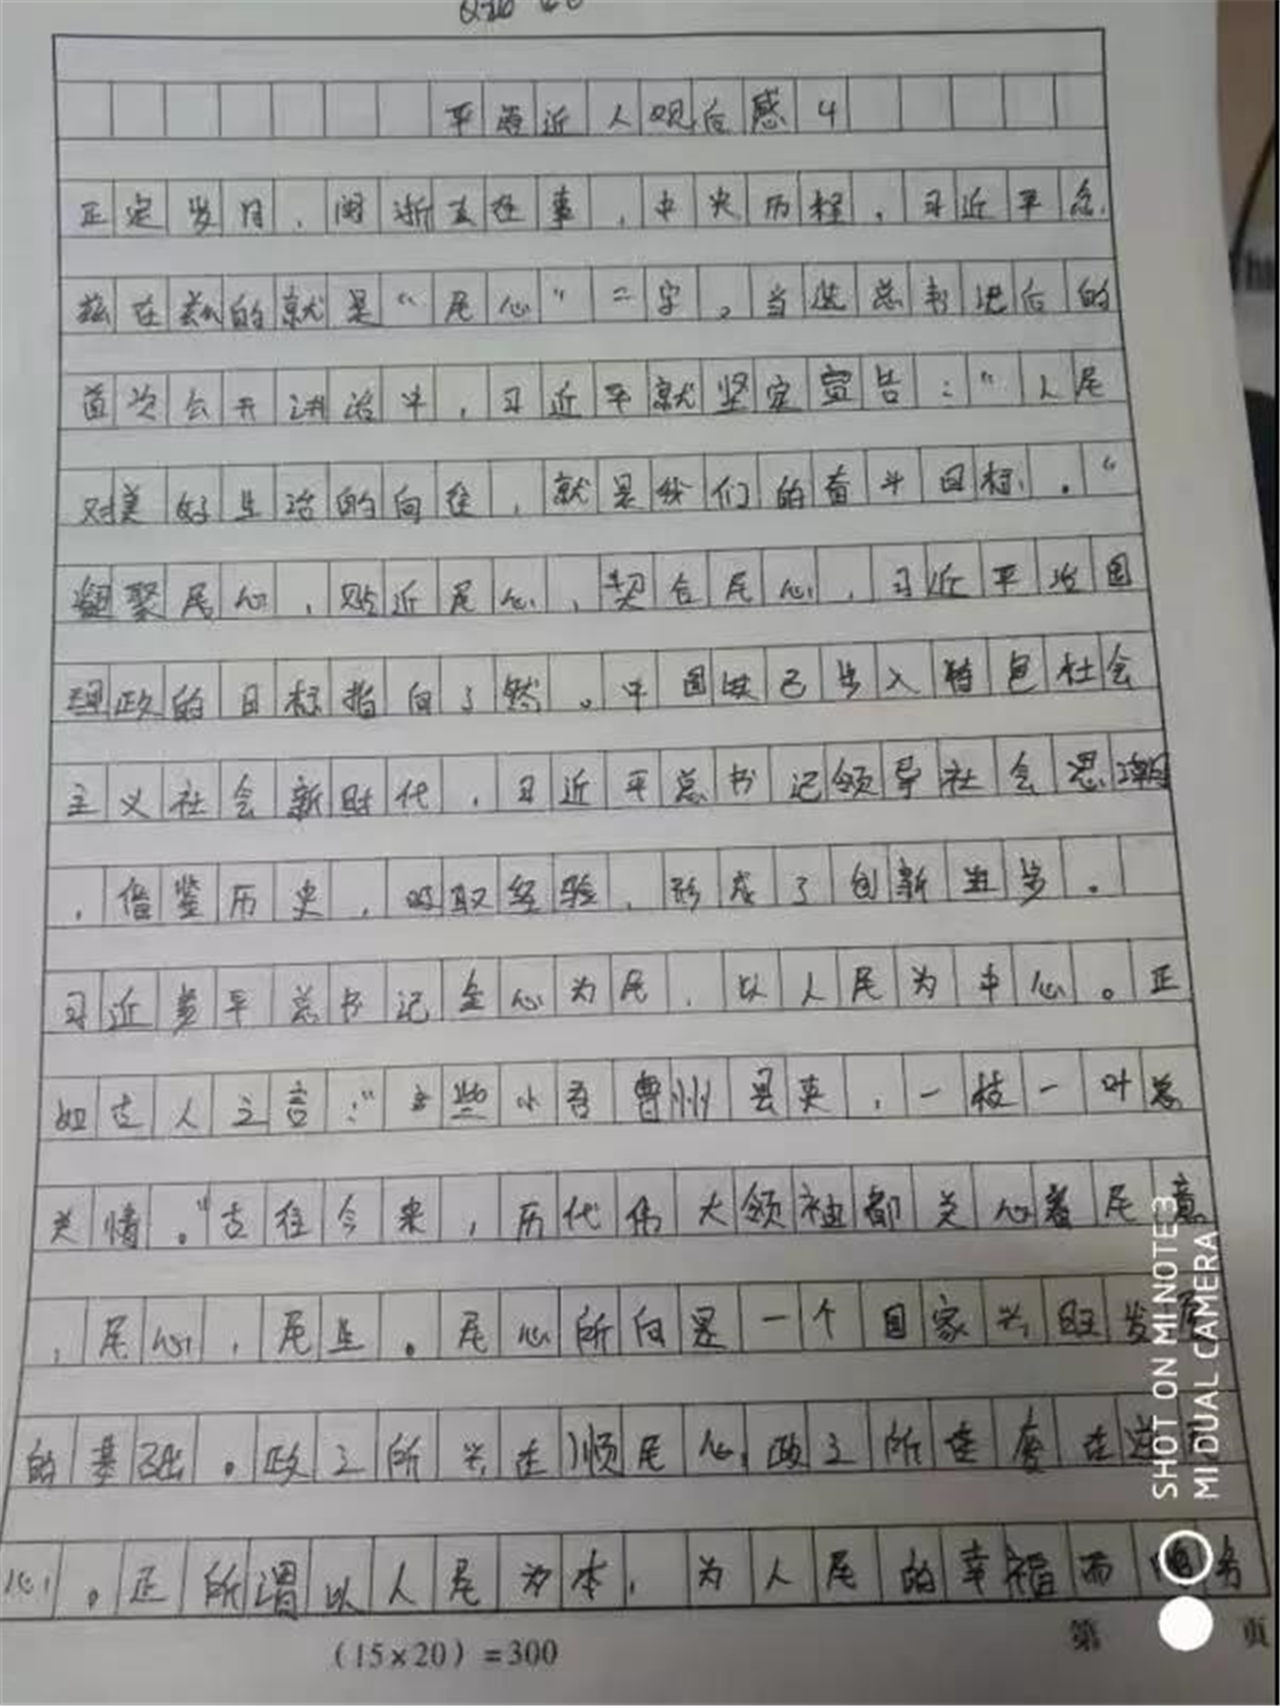 平语近人观后感4
正定岁月，闽浙主政事，中央历程，习近平念
兹在兹的就是“民心”二字。当选总书记后的
首次公开讲话中，习近平就坚定宣告：“人民
对美好生活的向往，就是我们的奋斗目标。“
凝聚民心，贴近民心，契合民心，习近平治国
理政的目标指向了然。中国已步入特色社会
主义社会新时代，习近平总书记领导社会思潮
，借鉴历史，吸取经验，形成了创新进步。
习近平总书记全心为民，以人民为中心。正
如古人之言：“些小吾曹州县吏，一枝一叶总
关情。“古往今来，历代伟大领袖都关心着民意
，民心，民生。民心所向是一个国家兴旺发展
的基础。政之所兴在顺民心，政之所废在逆
心。正所谓以人民为本，为人民的幸福而
(15×20)=300
第 页
SHOT ON MI NOTE 3
MI DUAL CAMERA